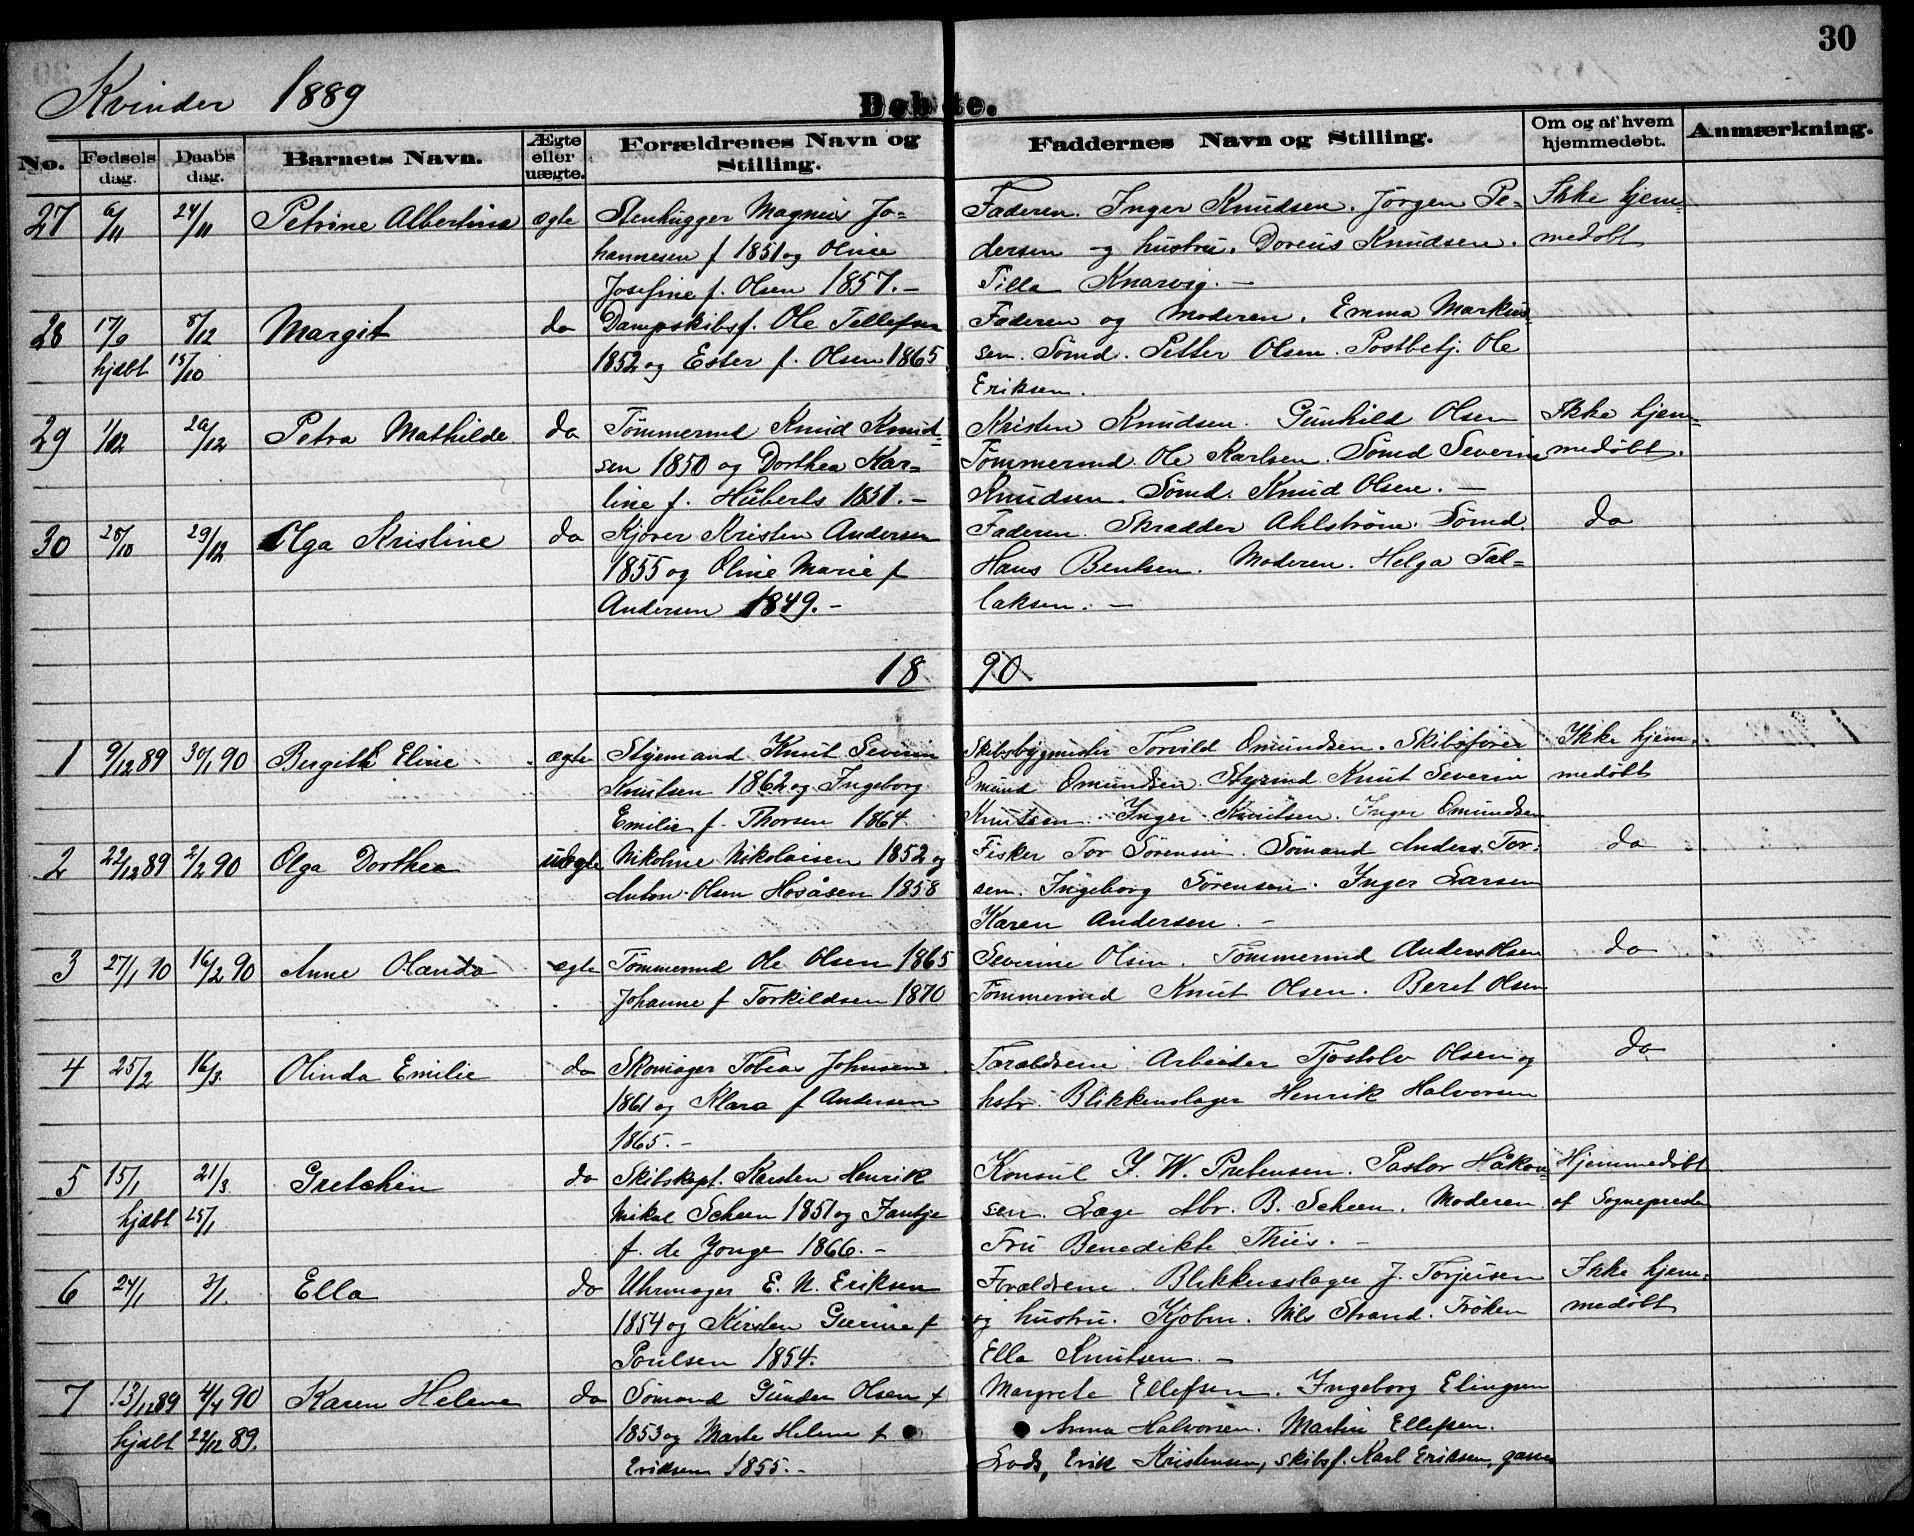 30
Kvinder 1889
Døbte.
No. Fødsels dag. Daabs dag. Barnets Navn. Ægte eller uægte. Forældrenes Navn og Stilling. Faddernes Navn og Stilling. Om og af hvem hjemmedøbt. Anmærkning.
27 6/11 24/11 Petrine Albertine ægte Stenhugger Magnus Jo- Faderen. Inger Knudsen. Jørgen Pe- Ikke hjem-
hannesen f 1851 og Oline dersen og hustru. Doreus Knudsen. medøbt
Josefine f. Olsen 1857.- Tilla Knarvig.-
28 17/9 8/12 Margit do Dampskibsf. Ole Tellefsen Faderen og Moderen. Emma Markus-
hjdbt 15/10 1852 og Ester f. Olsen 1865. sen. Sømd. Petter Olsen. Postbetj. Ole
Eriksen.
29 1/12 26/12 Petra Mathilde do Tømmermd Knud Knud- Kristen Knudsen. Gunhild Olsen Ikke hjem-
sen 1850 og Dorthea Kar- Tømmermd. Ole Karlsen. Sømd Severin medøbt.
line f. Huberts 1851.- Knudsen. Sømd. Knud Olsen.-
30 28/10 29/12 Olga Kristine do Kjører Kristen Andersen Faderen. Skrædder Ahlstrøm. Sømd. do
1855 og Oline Marie f Hans Bentsen. Moderen. Helga Tal-
Andersen 1849.- laksen.-
18 90
1 9/12 89 30/1 90 Birgith Eline ægte Styrmand Knut Severin Skibsbygmester Torvild Omundsen. Skibsfører Ikke hjem-
Knutsen 1862 og Ingeborg Omund Omundsen. Styrmd Knut Severin medøbt
Emilie f. Thorsen 1864. Knutsen. Inger Knutsen. Inger Omundsen
2 22/12 89 2/2 90 Olga Dorthea uægte Nikoline Nikolaisen 1852 og Fisker Tor Sørensen. Sømand Anders Tor- do
Anton Olsen Hosåsen 1858 sen. Ingeborg Sørensen. Inger Larsen
Karen Andersen.-
3 27/1 90 16/2 90 Anne Olanda ægte Tømmermd Ole Olsen 1865 Severine Olsen. Tømmermd Anders Olsen do
Johanne f Torkildsen 1870 Tømmermd Knut Olsen. Beret Olsen
4 25/2 16/3 Olinda Emilie do Skomager Tobias Johnsen Forældrene Arbeider Tjøstolv Olsen og do
1861 og Klara f Andersen hstr. Blikkenslager Henrik Halvorsen
1865.-
5 15/1 21/3 Gretchen do Skibskapt. Karsten Henrik Konsul J. W. Prebensen. Pastor Håkon- Hjemmedøbt
hjdbt 25/1 Mikal Scheen 1851 og Jantje sen. Læge Abr. B. Scheen. Moderen af Sognepresten
f. de Jonge 1866.- Fru Benedikte Thiis.-
6 24/1 3/1. Ella do Uhrmager E. N. Eriksen Forældrene. Blikkenslager J. Torjusen Ikke hjem-
1854 og Kirsten Gurine f og hustru. Kjøbm. Nils Strand. Frøken medøbt
Poulsen 1854. Ella Knutsen.-
7 13/12 89 4/4 90 Karen Helene do Sømand Gunder Olsen Margrete Ellefsen. Ingeborg Elingsen
hjdbt 22/12 89. 1853 og Marte Helene f Anna Halvorsen. Martin Ellefsen.
Eriksen 1855.- Lods, Erik Kristensen, skibsf. Karl Eriksen,